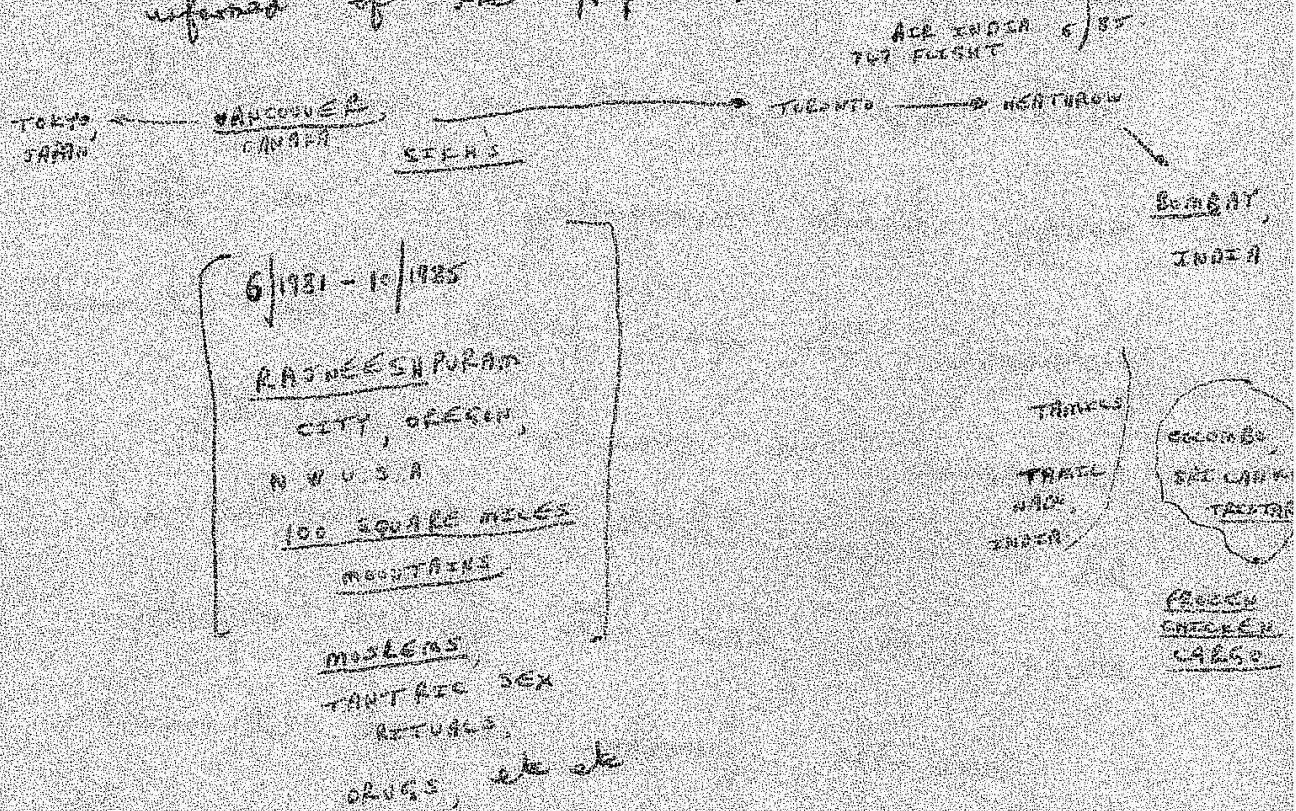 informed of the
AIR INDIA 6/85
747 FLIGHT
TOKYO,
JAPAN
VANCOUVER,
CANADA
SIKHS
TORONTO
HEATHROW
BOMBAY,
INDIA
6/1981 - 10/1985
RAJNEESHPURAM
CITY, OREGON,
N W U S A
100 SQUARE MILES
MOUNTAINS
MOSLEMS,
TANTRIC SEX
RITUALS,
DRUGS, etc etc
TAMILS
TAMIL
NADU,
INDIA
COLOMBO,
SRI LANK
TRISTAR
FROZEN
CHICKEN
CARGO